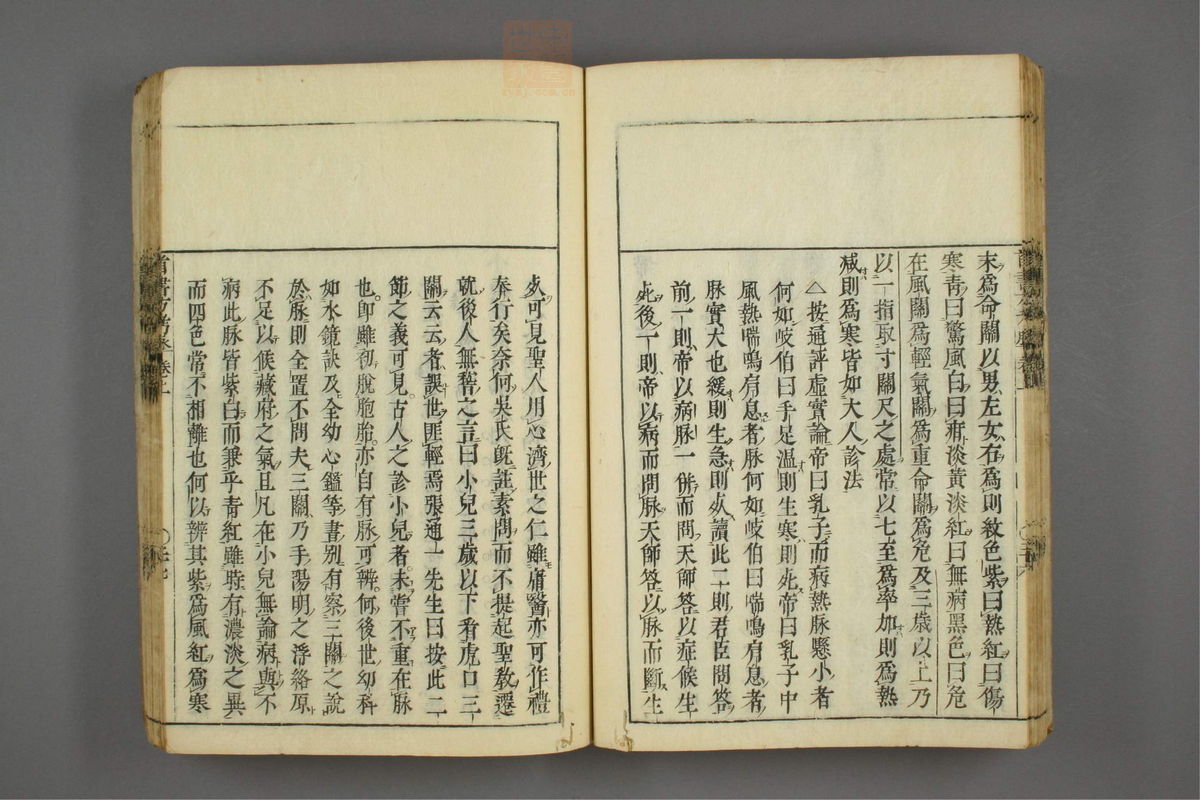 末爲命關以男左女右爲則紋色紫曰熱紅曰傷
寒青曰驚風白曰疳淡黃淡紅曰無病黑色曰危
在風關爲輕氣關爲重命關爲危及三歲以上乃
以一指取寸關尺之處常以七至爲率加則爲熱
減則爲寒皆如大人診法
△按通評虛實論帝曰乳子而病熱脉懸小者
何如岐伯曰手足温則生寒則死帝曰乳子中
風熱喘鳴肩息者脉何如岐伯曰喘鳴肩息者
脉實大也緩則生急則死讀此二則君臣問答
前一則帝以病脉一併而問天師答以症候生
死後一則帝以病而問脉天師答以脉而斷生
死可見聖人用心濟世之仁雖庸醫亦可作禮
奉行矣奈何吳氏既註素問而不提起聖教遷
就後人無稽之言曰小兒三歲以下看虎口三
關云云者誤世匪輕焉張通一先生曰按此二
節之義可見古人之診小兒者未嘗不重在脉
也即雖初脫胞胎亦自有脉可辨何後世幼科
如水鏡訣及全幼心鑑等書別有察三關之說
於脉則全置不問夫三關乃手陽明之浮絡原
不足以候藏府之氣且凡在小兒無論病與不
病此脉皆紫白而兼乎青紅雖時有濃淡之異
而四色常不相離也何以辨其紫爲風紅爲寒